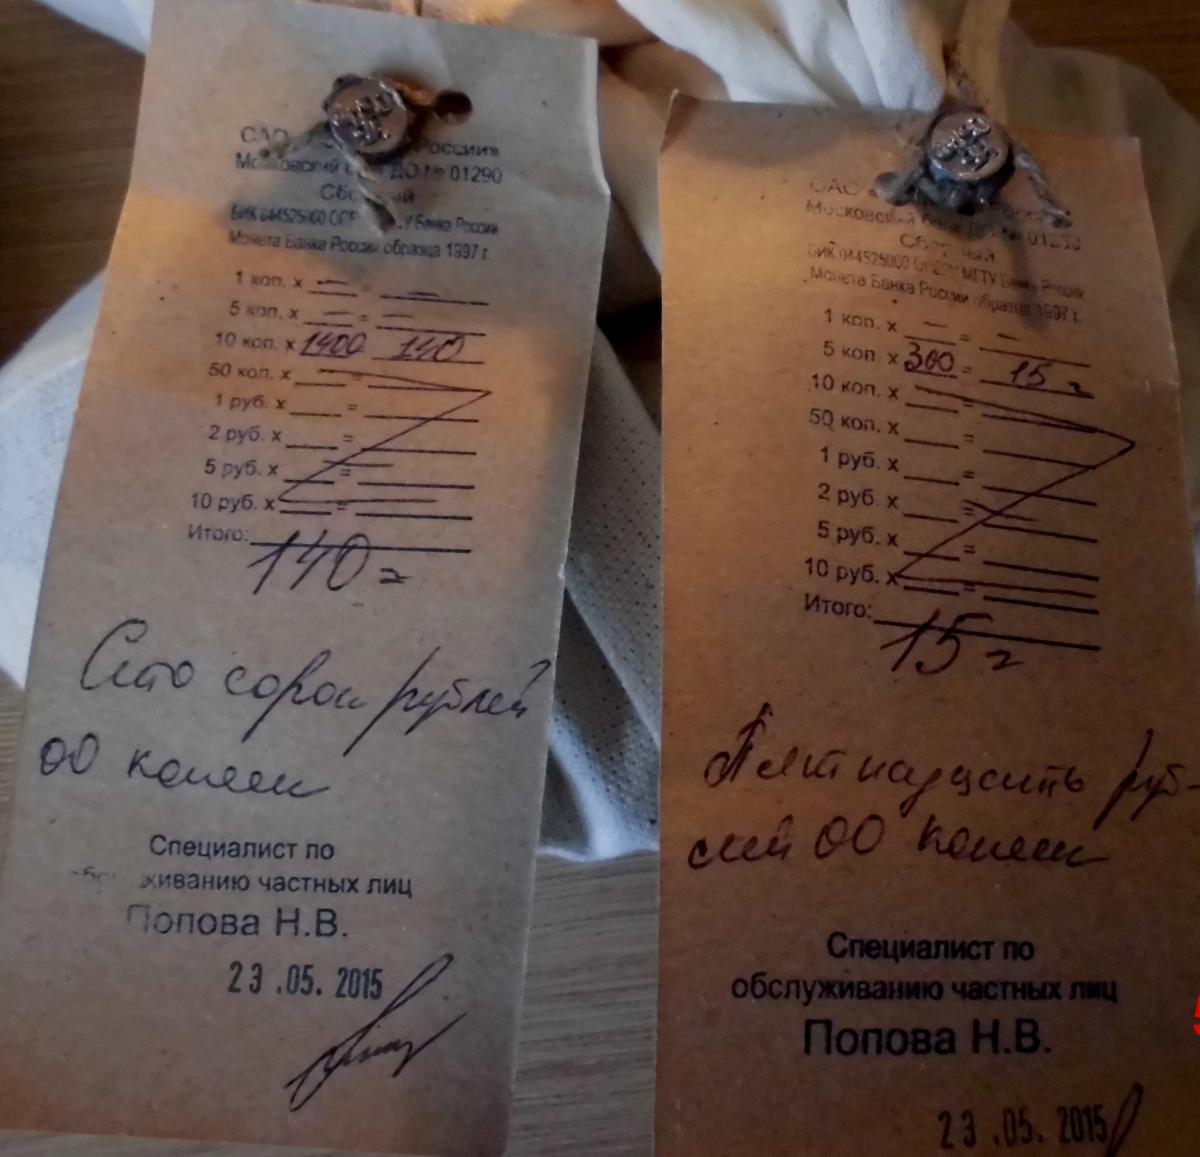 САО России»
Московский ДО № 01290
Сборный
БИК 044525000 У Банка России
Монета Банка России образца 1997 г.
1 коп. х — = —
5 коп. х — = —
10 коп. х 1400 140
50 коп. х =
1 руб. х =
2 руб. х =
5 руб. х =
10 руб. х =
Итого:
140=
Сто сорок рублей
00 копеек
Специалист по
живанию частных лиц
Попова Н.В.
23.05.2015
ОАО «
Московский банк
Сборный
БИК 044525000 МГТУ Банка России
Монета Банка России образца 1997 г.
1 коп. х — = —
5 коп. х 300 = 15=
10 коп. х =
50 коп. х =
1 руб. х =
2 руб. х =
5 руб. х =
10 руб. х =
Итого:
15=
Пятнадцать руб-
лей 00 копеек
Специалист по
обслуживанию частных лиц
Попова Н.В.
23.05.2015